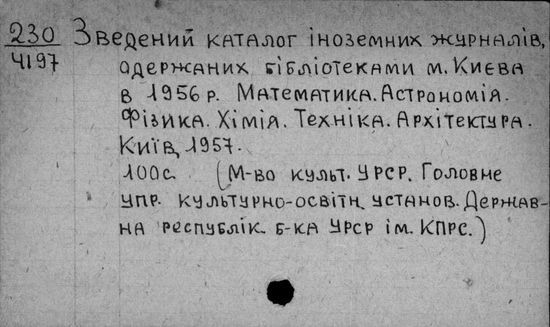 230 Зведений каталог іноземних журналів,
4197 одержаних бібліотеками м. Києва
в 1956 р. Математика. Астрономія.
Фізика. Хімія. Техніка. Архітектура.
Київ, 1957.
100с. (М-во культ. УРСР. Головне
упр. культурно-освітн. установ. Держав-
на республік. б-ка УРСР ім. КПРС.)